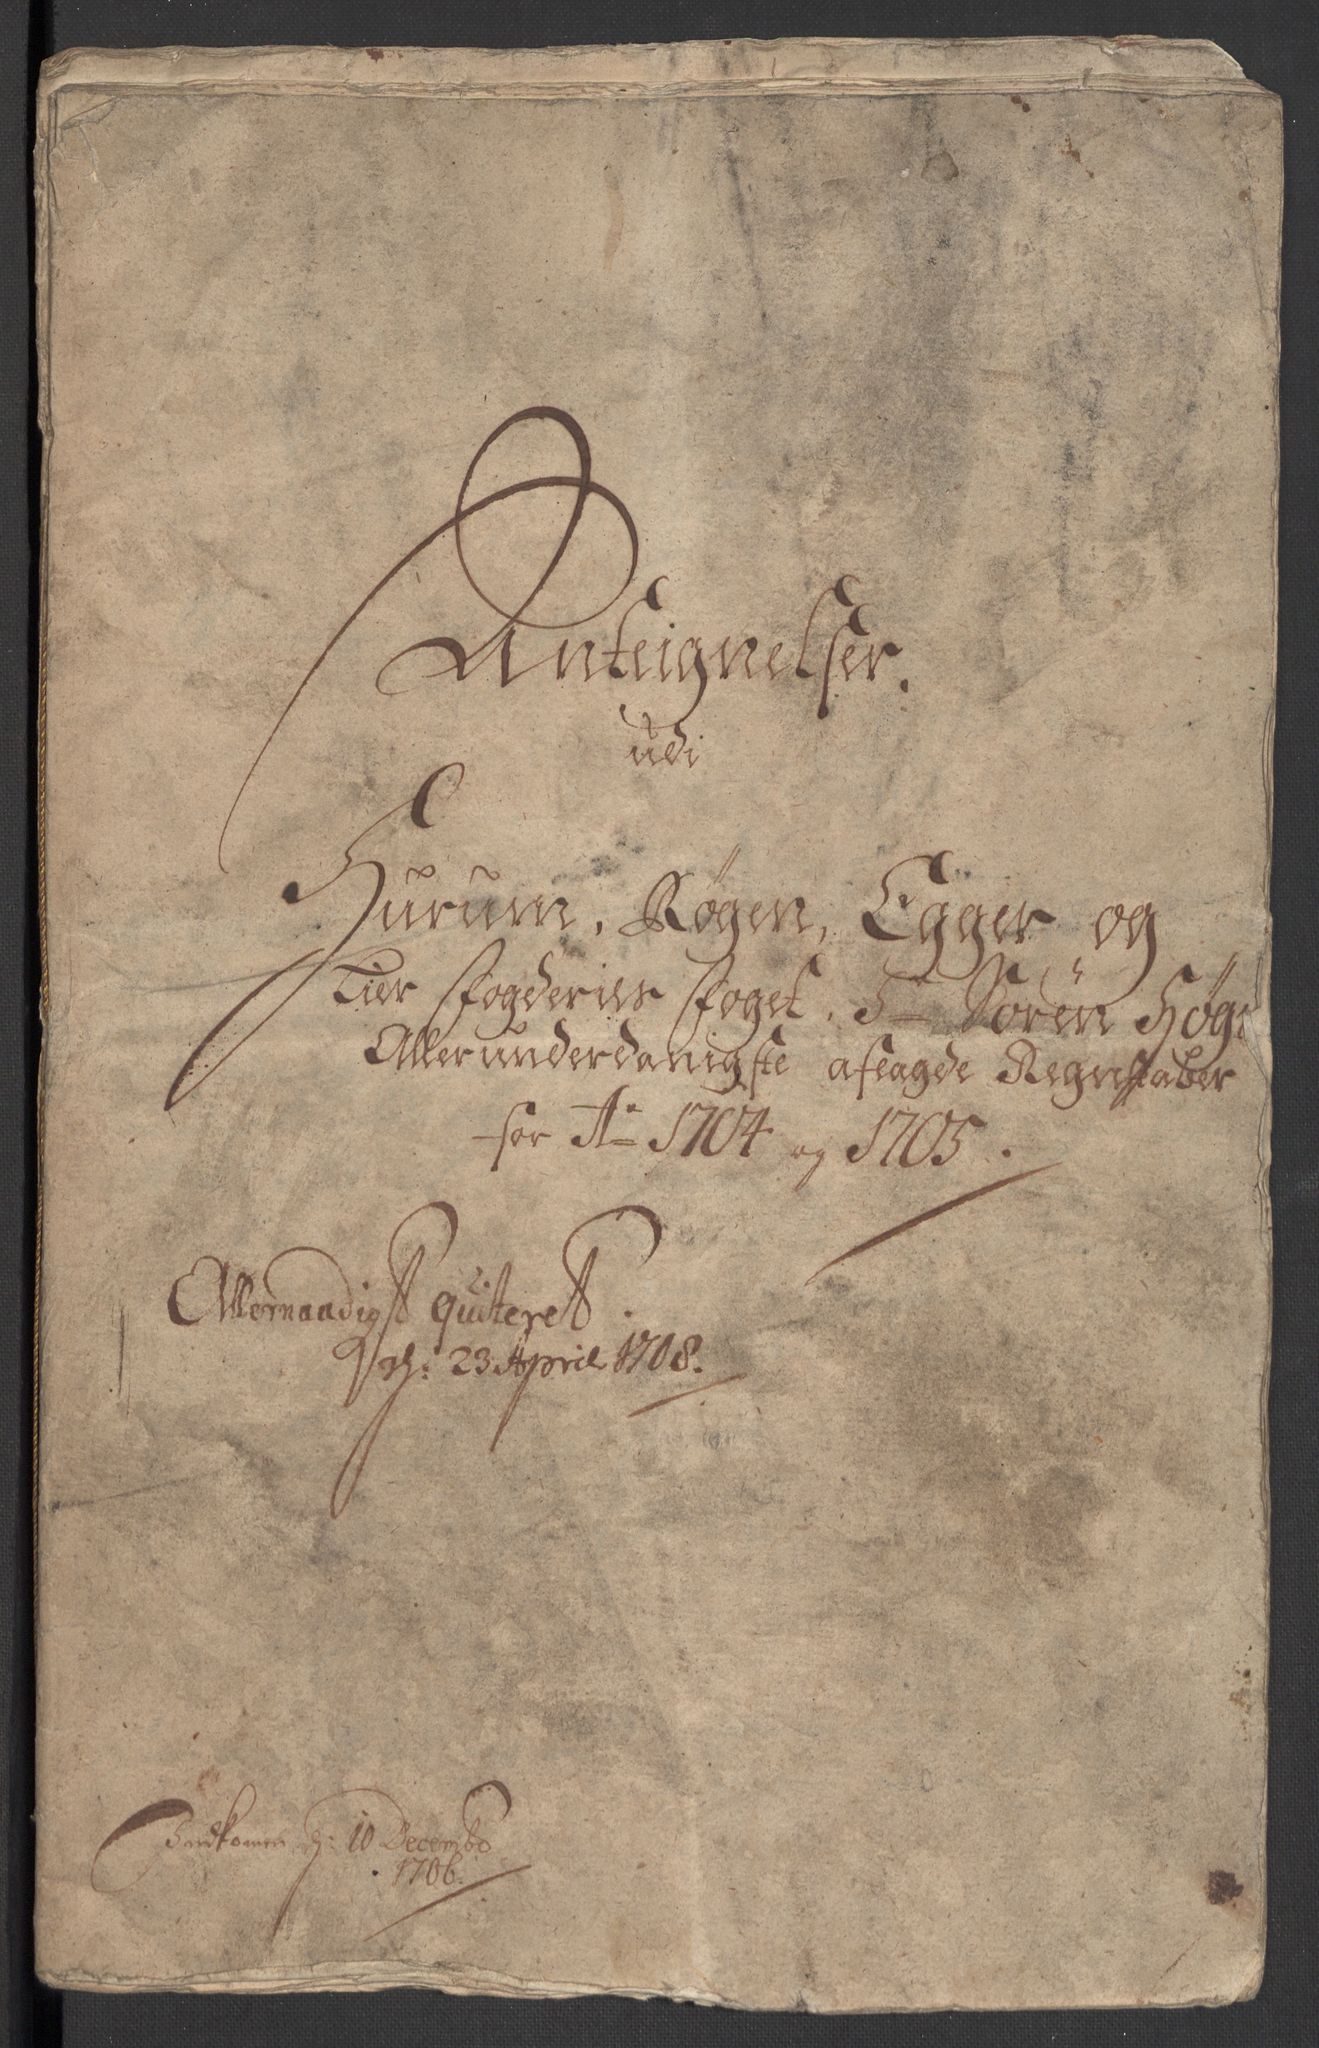 Anteignelser.
udi
Hurum, Røgen, Egger og
Lier fogderies foget, Sr Sören Høgs
Allerunderdanigste aflagde Regnskaber
for Ao 1704 og 1705.
Allernaadigst quiteret.
d: 23 April 1708.
Indkomen d: 10 Decembr
1706.